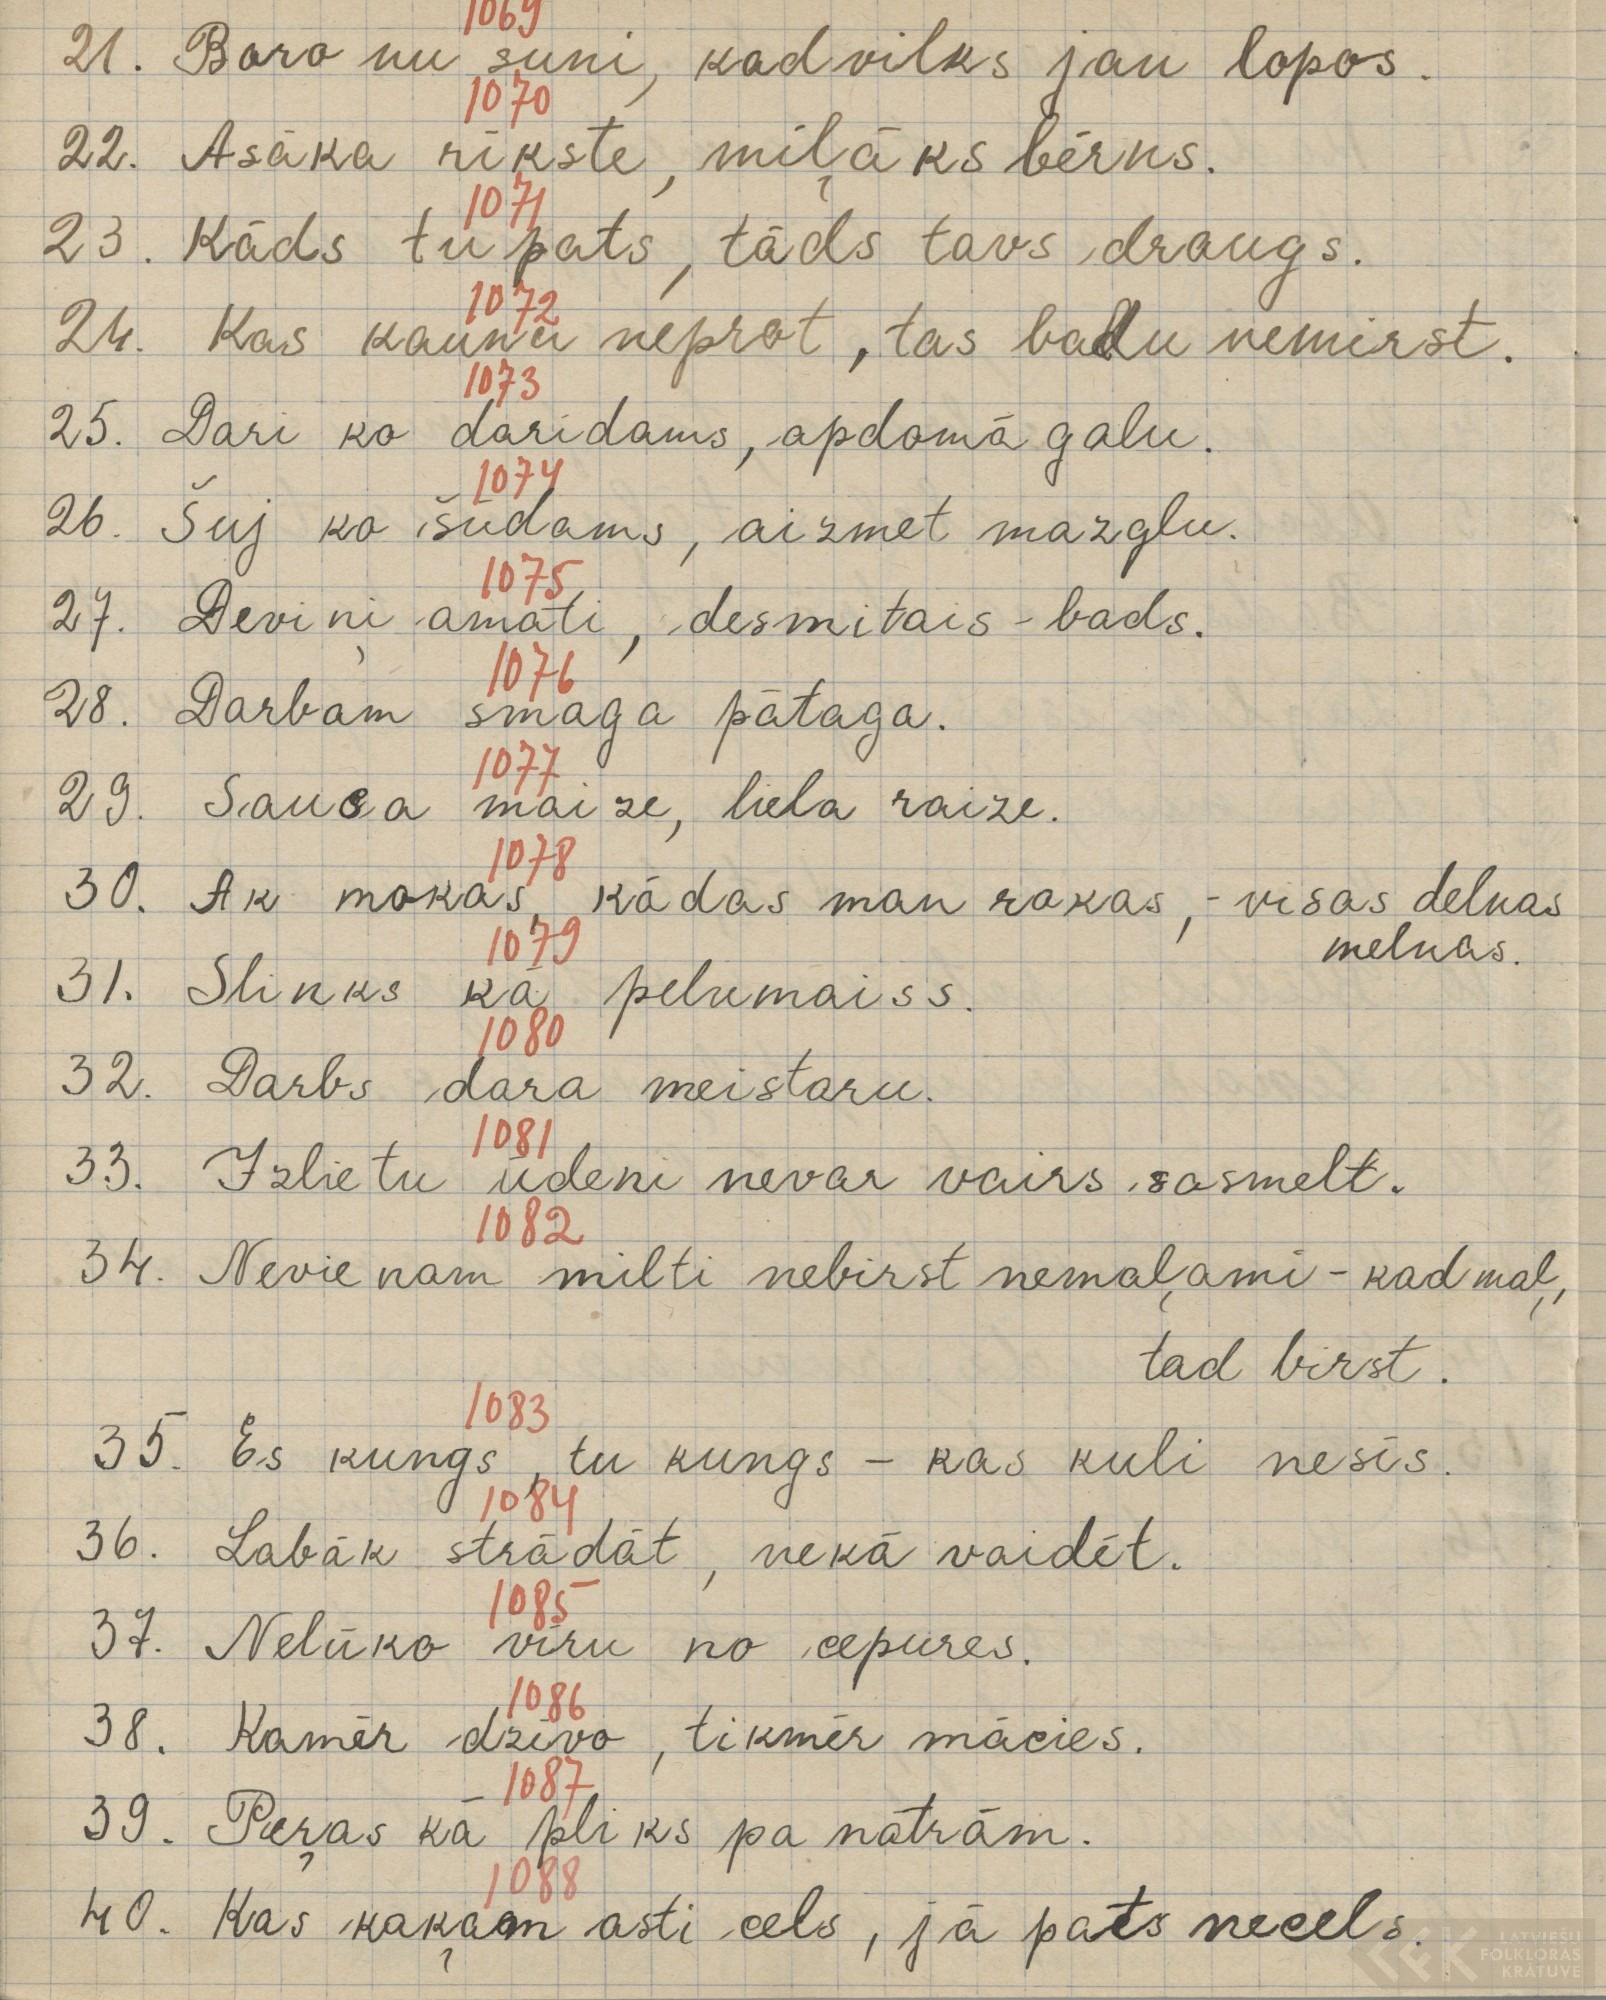 1069
21. Baro nu suni, kad vilks jau lopos.
1070
22. Asāka rīkste, miļāks bērns.
1071
23. Kāds tu pats, tāds tavs draugs.
1072
24. Kas kaunu neprot, tas badu nemirst.
1073
25. Dari ko darīdams, apdomā galu.
1074
26. Šuj ko šūdams, aizmet mazglu.
1075
27. Deviņi amati, desmitais - bads.
1076
28. Darbam smaga pātaga.
1077
29. Sausa maize, liela raize.
1078
30. Ak mokas, kādas man rokas, - visas delnas
melnas.
1079
31. Slinks kā pelumaiss.
1080
32. Darbs dara meistaru.
1081
33. Izlietu ūdeni nevar vairs sasmelt.
1082
34. Nevienam milti nebirst nemaļami - kad maļ,
tad birst.
1083
35. Es kungs, tu kungs - kas kuli nesīs.
1084
36. Labāk strādāt, nekā vaidēt.
1085
37. Nelūko vīru no cepures.
1086
38. Kamēr dzīvo, tikmēr mācies.
1087
39. Peŗas kā pliks pa nātrām.
1088
40. Kas kaķam asti cels, jā pats necels.
LATVIEŠU
FOLKLORAS
KRĀTUVE